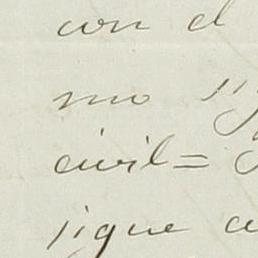 con el
mo
civil=
sigue